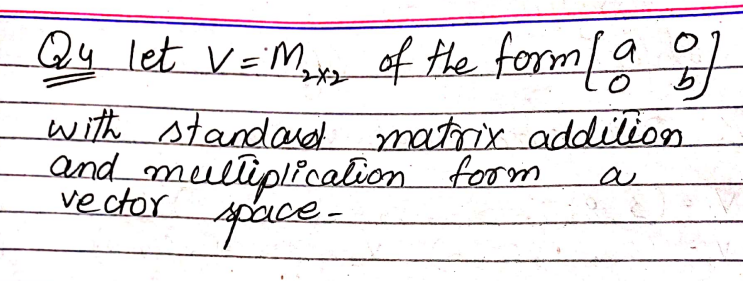 Q4 let V = M₂ₓ₂ of the form [a 0
0 b]
with standard matrix addition
and multiplication form a
vector space-